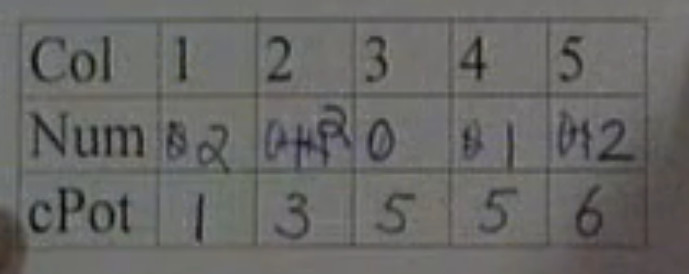 Col 1 2 3 4 5
Num 2 2 0 1 2
cPot 1 3 5 5 6